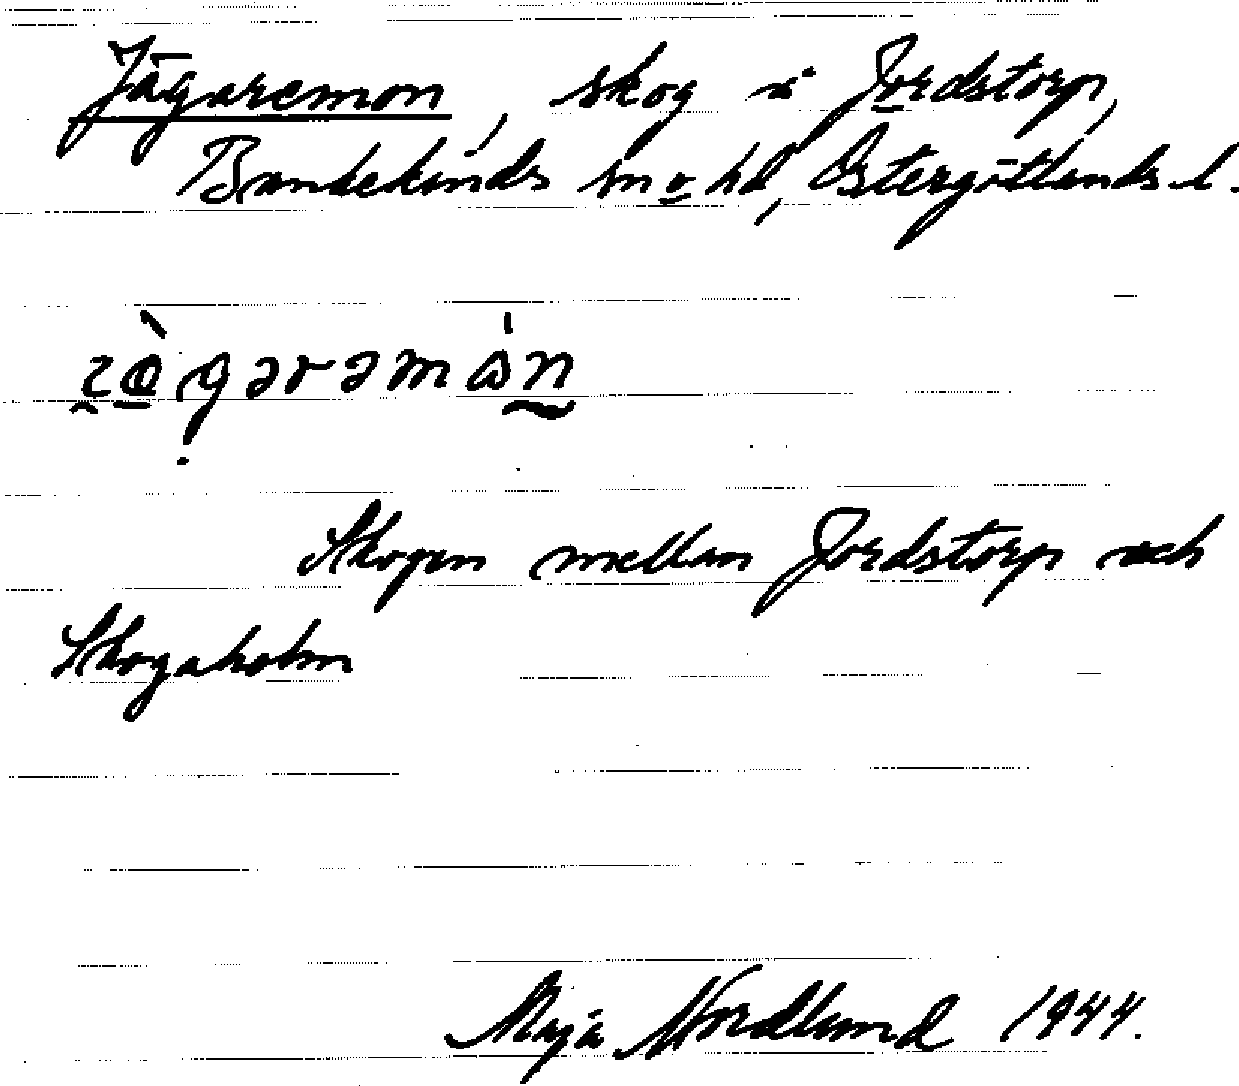 Jägaremon, skog i Jordstorp,
Bankekinds sn o. hd, Östergötlands l.
Skogen mellan Jordstorp och
Skogaholm
Maja Nordlund 1944.